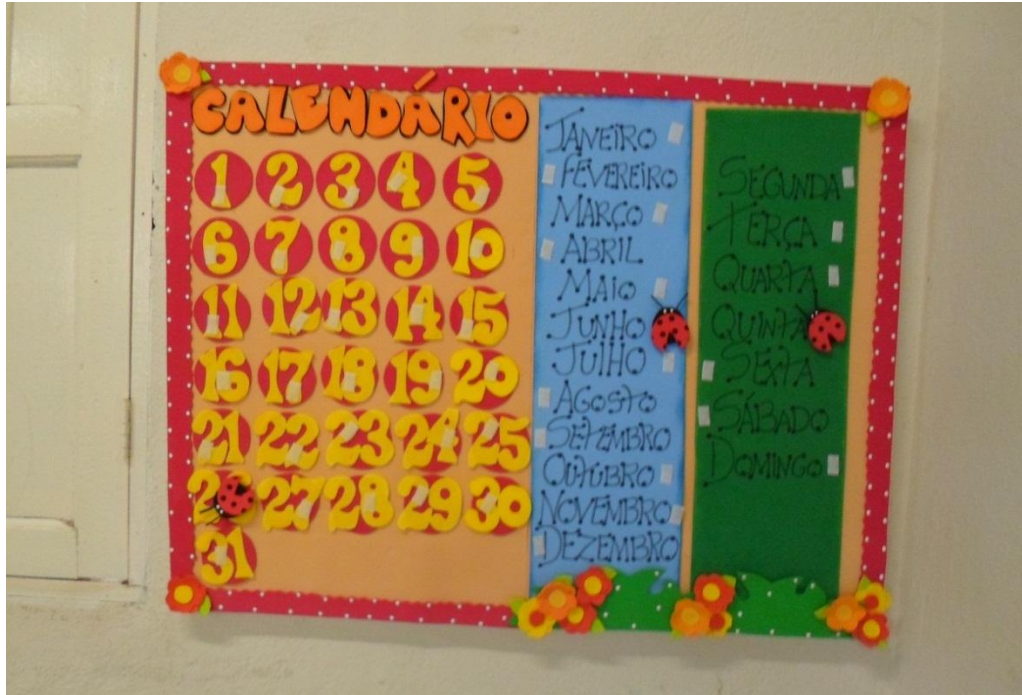 CALENDÁRIO
1 2 3 4 5
6 7 8 9 10
11 12 13 14 15
16 17 18 19 20
21 22 23 24 25
26 27 28 29 30
31
JANEIRO
FEVEREIRO
MARÇO
ABRIL
MAIO
JUNHO
JULHO
AGOSTO
SETEMBRO
OUTUBRO
NOVEMBRO
DEZEMBRO
SEGUNDA
TERÇA
QUARTA
QUINTA
SEXTA
SÁBADO
DOMINGO